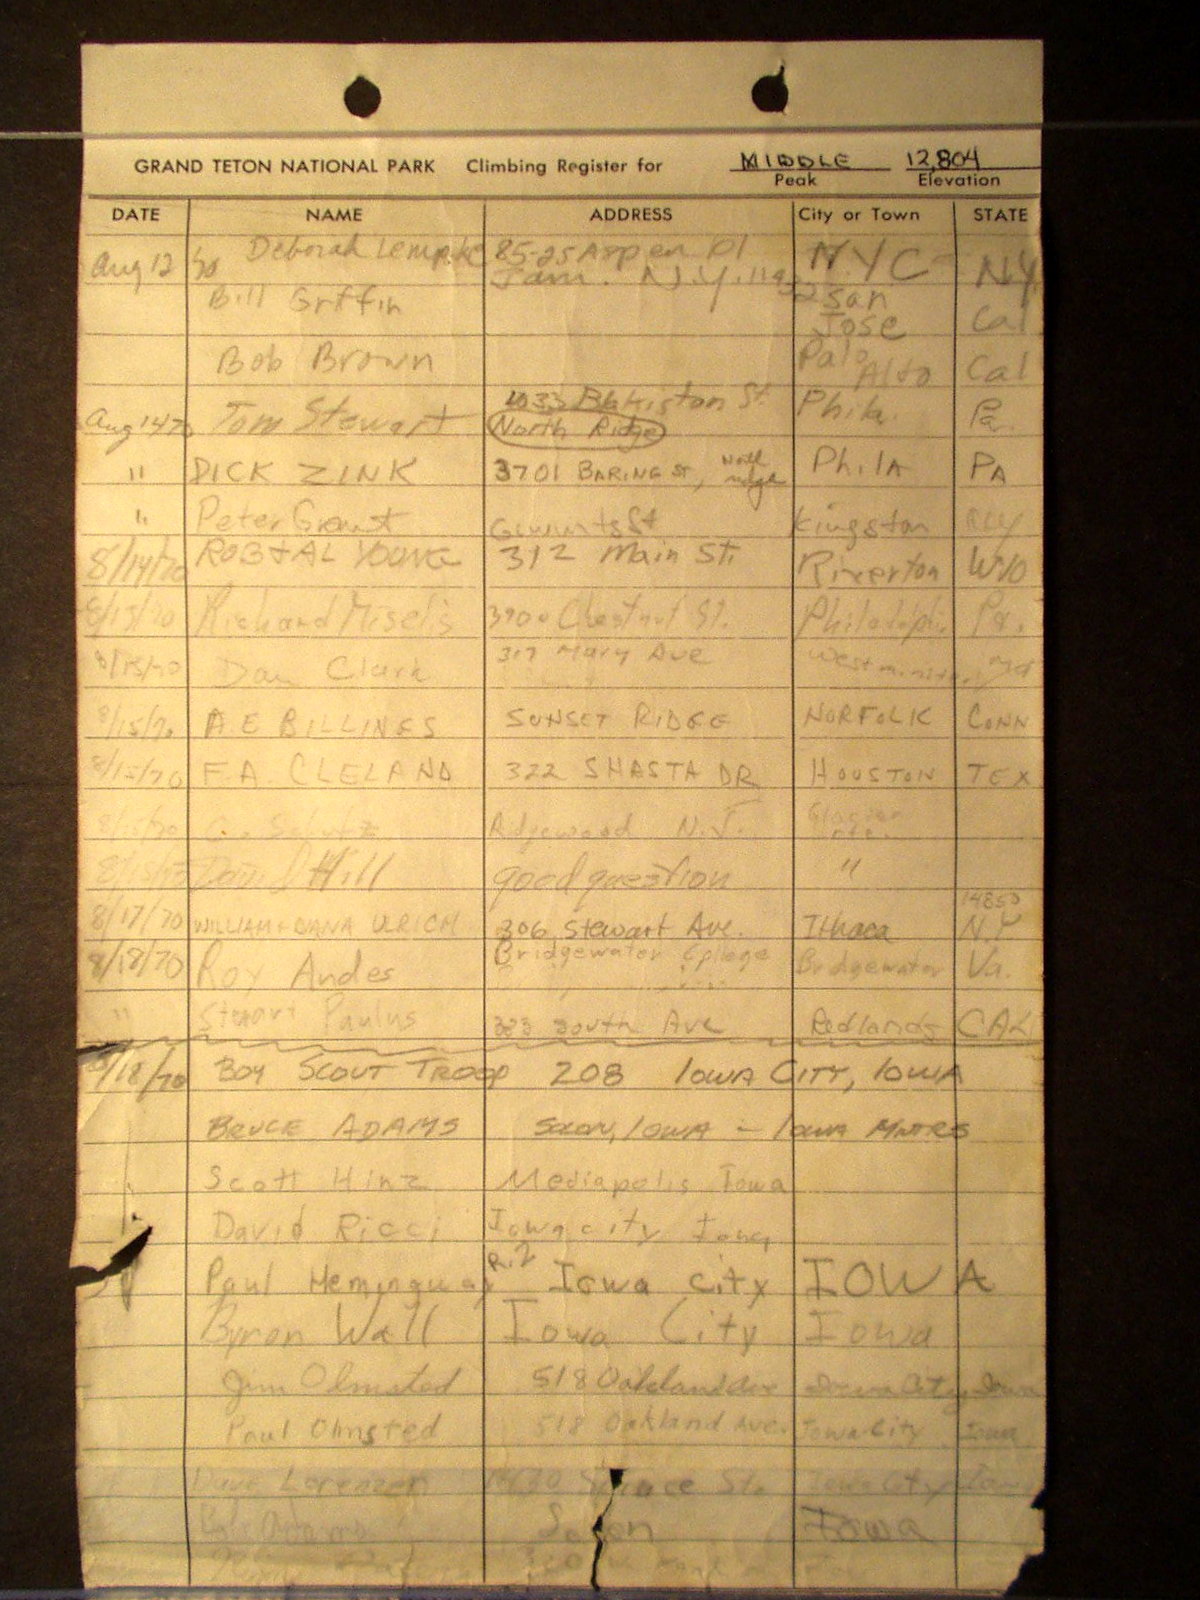 GRAND TETON NATIONAL PARK Climbing Register for MIDDLE 12,804
Peak Elevation
DATE NAME ADDRESS City or Town STATE
Aug 12 70 Deborah Lempke 85-25 Aspen Pl NYC NY
Jam. N.Y. 11432
Bill Griffin San Jose Cal
Bob Brown Palo Alto Cal
Aug 14 70 Tom Stewart 1033 St. Phila. Pa.
North Ridge
" DICK ZINK 3701 BARING ST, North ridge PhilA PA
" Peter Grant St Kingston
8/14/70 ROB & AL YOUNG 312 Main St. Riverton WYO
8/15/70 Richard 3900 Chestnut St. Pa.
8/15/70 Dan Clark 317 Mary Ave Md
8/15/70 A E BILLINGS SUNSET RIDGE NORFOLK CONN
8/15/70 F.A. CLELAND 322 SHASTA DR HOUSTON TEX
8/15/70 Schutz N.J. Glacier
8/15/70 Hill good question "
8/17/70 WILLIAM + DANA ULRICH 306 Stewart Ave. Ithaca N.Y 14850
8/18/70 Roy Andes Bridgewater College Bridgewater Va.
" Stewart Paulus 323 South Ave Redlands CAL
8/18/70 BOY SCOUT TROOP 208 IOWA CITY, IOWA
BRUCE ADAMS SOLON, IOWA - IOWA MNTRS
Scott Hinz Mediapolis Iowa
David Ricci Iowa city Iowa
Paul Hemingway R.2 Iowa city IOWA
Byron Wall Iowa City Iowa
Jim Olmsted 518 Oakland Ave Iowa City, Iowa
Paul Olmsted 518 Oakland Ave. Iowa City Iowa
Dave Lorenzen St. Iowa City Iowa
Solon Iowa